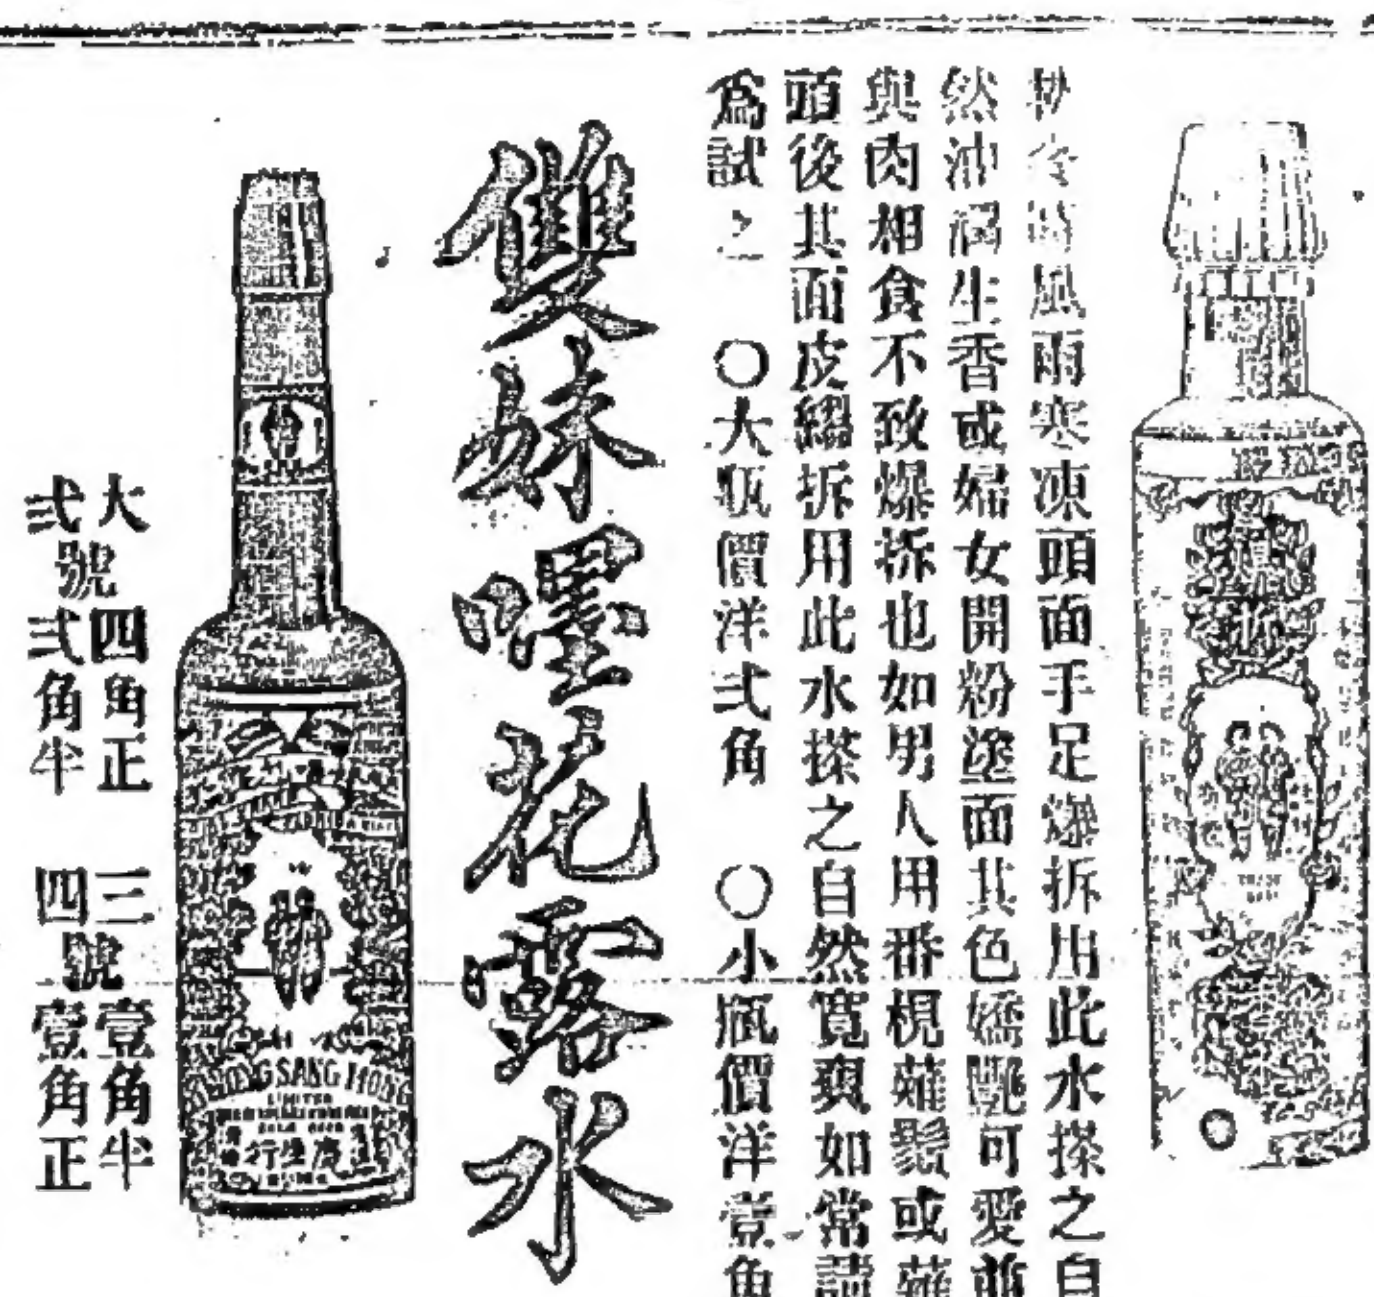 冷時風雨寒凍頭面手足爆拆用此水搽之自
然油潤生香或婦女開粉塗面其色嬌艷可愛並
與肉相食不致爆拆也如男人用番梘薙鬍或薙
頭後其面皮縐拆用此水搽之自然寬爽如常請
爲試之 〇大瓶價洋弍角 〇小瓶價洋壹角
爆拆
雙妹嚜花露水
KWONG SANG HONG
LIMITED
廣生行
大號四角正 三號壹角半
弍號弍角半 四號壹角正